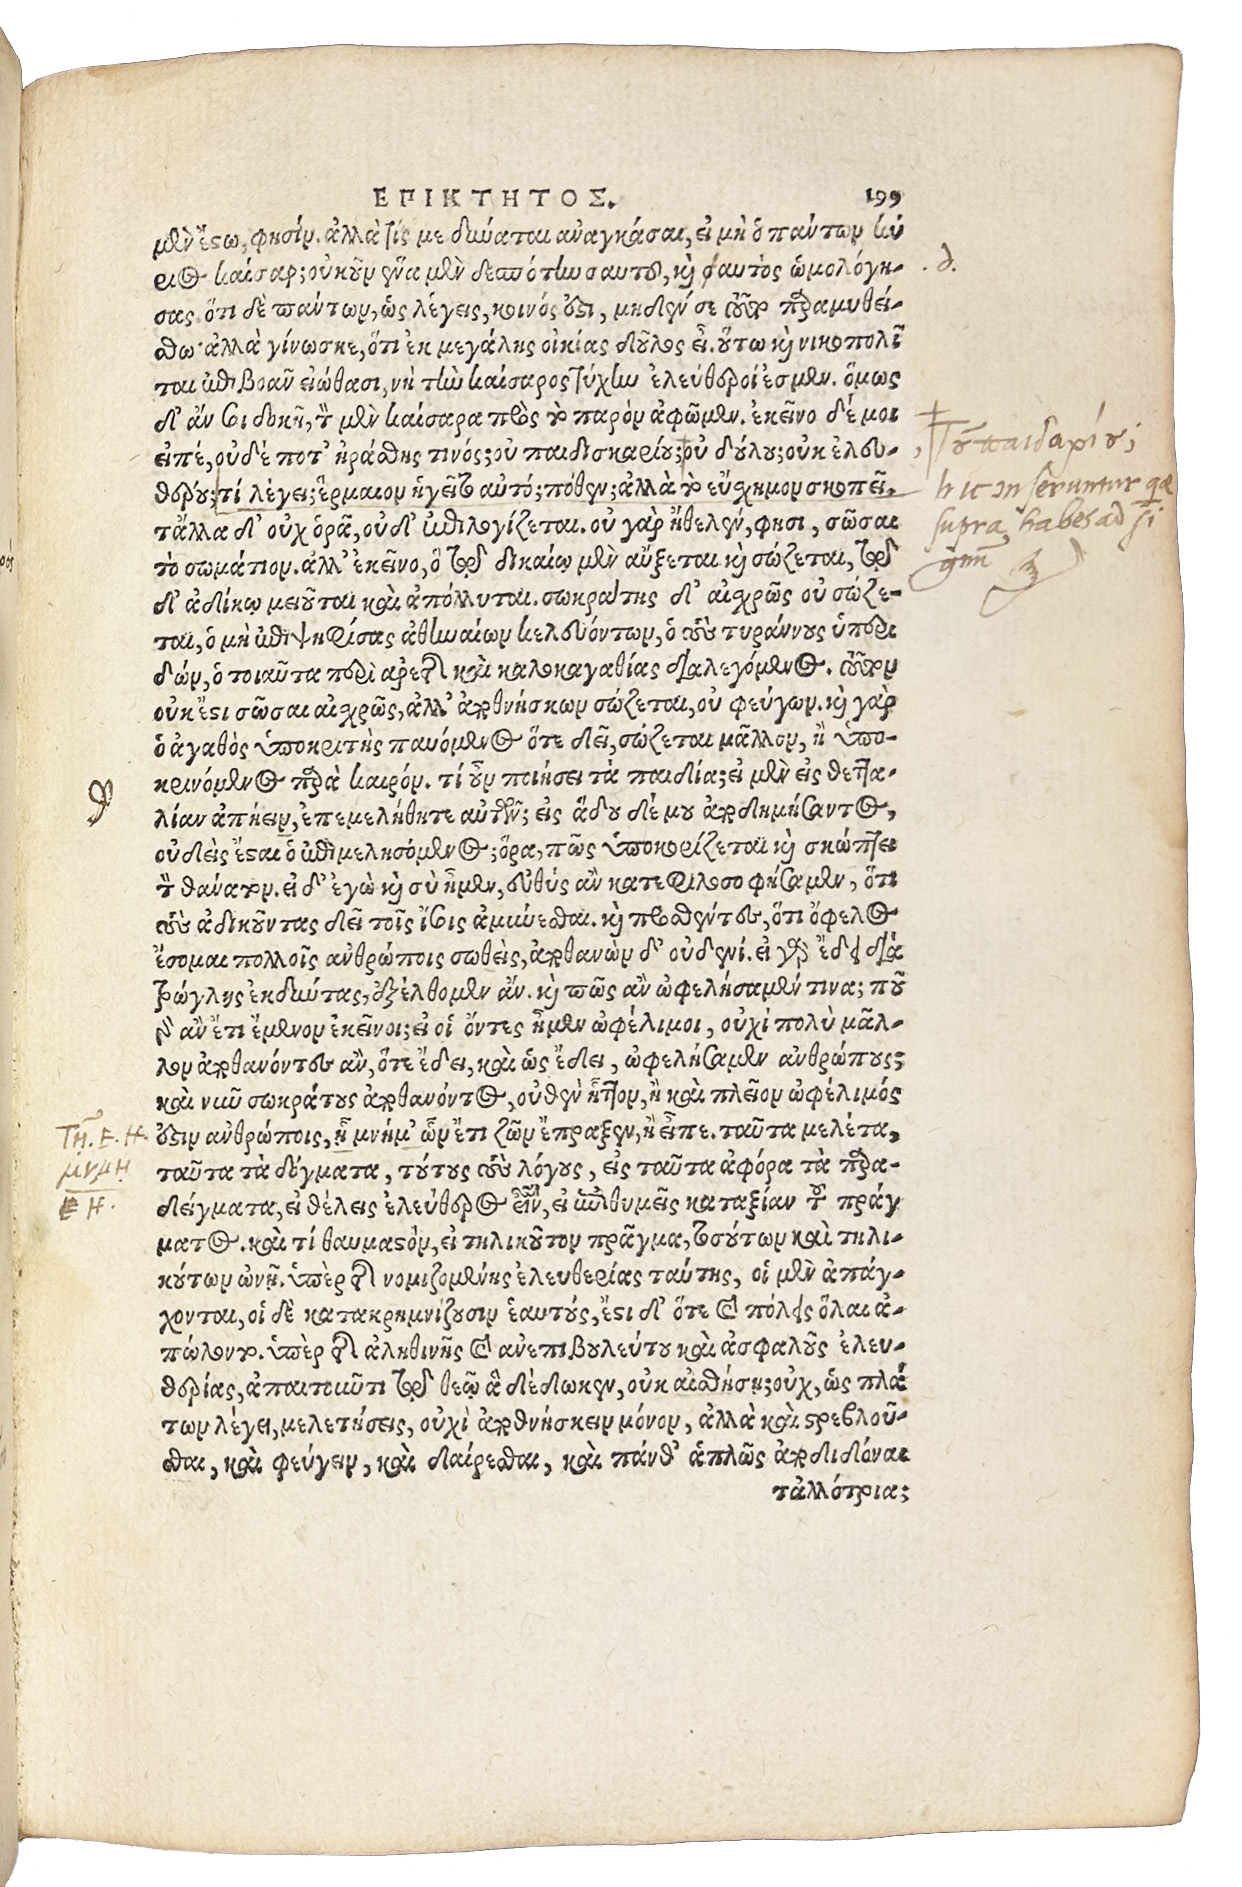 ΕΠΙΚΤΗΤΟΣ. 199
μὲν ἔξω, φησίν. ἀλλὰ τίς με δύναται ἀναγκάσαι, εἰ μὴ ὁ πάντων κύ
ριος καίσαρ; οὐκοῦν ἕνα μὲν δεσπότην σαυτοῦ, καὶ σαυτὸς ὡμολόγη-
σας. ὅτι δὲ πάντων, ὡς λέγεις, κοινός ἐστι, μηδέν σε τοῦτο παραμυθεί-
σθω· ἀλλὰ γίνωσκε, ὅτι ἐκ μεγάλης οἰκίας δοῦλος εἶ. οὕτω καὶ νικοπολῖ
ται ἐπιβοᾶν εἰώθασι, νὴ τὴν καίσαρος τύχην ἐλεύθεροί ἐσμεν. ὅμως
δ' ἄν σοι δοκῇ, τὸν μὲν καίσαρα πρὸς τὸ παρὸν ἀφῶμεν. ἐκεῖνο δέ μοι
εἰπέ, οὐδέ ποτ' ἠράσθης τινός; οὐ παιδισκαρίου; οὐ δούλου; οὐκ ἐλευ-
θέρου; τί λέγει; ἕρμαιον ἡγεῖτο αὐτό; πόθεν; ἀλλὰ τὸ εὔσχημον σκοπεῖ.
τἄλλα δ' οὐχ ὁρᾷ, οὐδ' ἐπιλογίζεται. οὐ γὰρ ἤθελεν, φησι, σῶσαι
τὸ σωμάτιον. ἀλλ' ἐκεῖνο, ὃ τῷ δικαίῳ μὲν αὔξεται καὶ σώζεται, τῷ
δ' ἀδίκῳ μειοῦται καὶ ἀπόλλυται. σωκράτης δ' αἰσχρῶς οὐ σώζε-
ται, ὁ μὴ ἐπιψηφίσας ἀθηναίων κελευόντων, ὁ τοὺς τυράννους ὑπερι
δών, ὁ τοιαῦτα περὶ ἀρετῆς καὶ καλοκαγαθίας διαλεγόμενος. τοῦτον
οὐκ ἔστι σῶσαι αἰσχρῶς, ἀλλ' ἀποθνήσκων σώζεται, οὐ φεύγων. καὶ γὰρ
ὁ ἀγαθὸς ὑποκριτὴς παυόμενος ὅτε δεῖ, σώζεται μᾶλλον, ἢ ὑπο-
κρινόμενος παρὰ καιρόν. τί οὖν ποιήσει τὰ παιδία; εἰ μὲν εἰς θετ̓τα-
λίαν ἀπῄειν, ἐπεμελήθητε αὐτῶν; εἰς ᾅδου δέ μου ἀποδημήσαντος,
οὐδεὶς ἔσται ὁ ἐπιμελησόμενος; ὅρα, πῶς ὑποκορίζεται καὶ σκώπτει
τὸν θάνατον. εἰ δ' ἐγὼ καὶ σὺ ἦμεν, εὐθὺς ἂν κατεφιλοσοφήσαμεν, ὅτι
τοὺς ἀδικοῦντας δεῖ τοῖς ἴσοις ἀμύνεσθαι. καὶ προσθέντες, ὅτι ὄφελος
ἔσομαι πολλοῖς ἀνθρώποις σωθεὶς, ἀποθανὼν δ' οὐδενί. εἰ γὰρ ἔδει διὰ
τρώγλης ἐκδύντας, ἐξέλθομεν ἄν. καὶ πῶς ἂν ὠφελήσαμέν τινα; ποῦ
γὰρ ἂν ἔτι ἔμενον ἐκεῖνοι; εἰ οἱ ὄντες ἦμεν ὠφέλιμοι, οὐχὶ πολὺ μᾶλ-
λον ἀποθανόντες ἄν, ὅτε ἔδει, καὶ ὡς ἔδει, ὠφελήσαμεν ἀνθρώπους;
καὶ νῦν σωκράτους ἀποθανόντος, οὐθὲν ἧττον, ἢ καὶ πλεῖον ὠφέλιμός
ἐστιν ἀνθρώποις, ᾗ μνήμ' ὧν ἔτι ζῶν ἔπραξεν, ἢ εἶπε. ταῦτα μελέτα,
ταῦτα τὰ δόγματα, τούτους τοὺς λόγους, εἰς ταῦτα ἀφόρα τὰ παρα-
δείγματα, εἰ θέλεις ἐλεύθερος εἶναι, εἰ ἐπιθυμεῖς καταξίαν τοῦ πράγ
ματος. καὶ τί θαυμαστόν, εἰ τηλικοῦτον πρᾶγμα, τοσούτων καὶ τηλι-
κούτων ὠνῇ. ὑπὲρ τῆς νομιζομένης ἐλευθερίας ταύτης, οἱ μὲν ἀπάγ-
χονται, οἱ δὲ κατακρημνίζουσιν ἑαυτούς, ἔστι δ' ὅτε καὶ πόλεις ὅλαι ἀ-
πώλοντο. ὑπὲρ τῆς ἀληθινῆς καὶ ἀνεπιβουλεύτου καὶ ἀσφαλοῦς ἐλευ-
θερίας, ἀπαιτοῦντι τῷ θεῷ ἃ δέδωκεν, οὐκ αἰσθήσῃ; οὐχ, ὡς πλά
των λέγει, μελετήσεις, οὐχὶ ἀποθνήσκειν μόνον, ἀλλὰ καὶ στρεβλοῦ-
σθαι, καὶ φεύγειν, καὶ δαίρεσθαι, καὶ πάνθ' ἁπλῶς ἀποδιδόναι
τἀλλότρια;
. δ.
οὐ παιδαρίου;
hic inseruntur quae
supra habes ad si
gnum
Τῇ. Ε. Η.
μνμη
Ε Η.